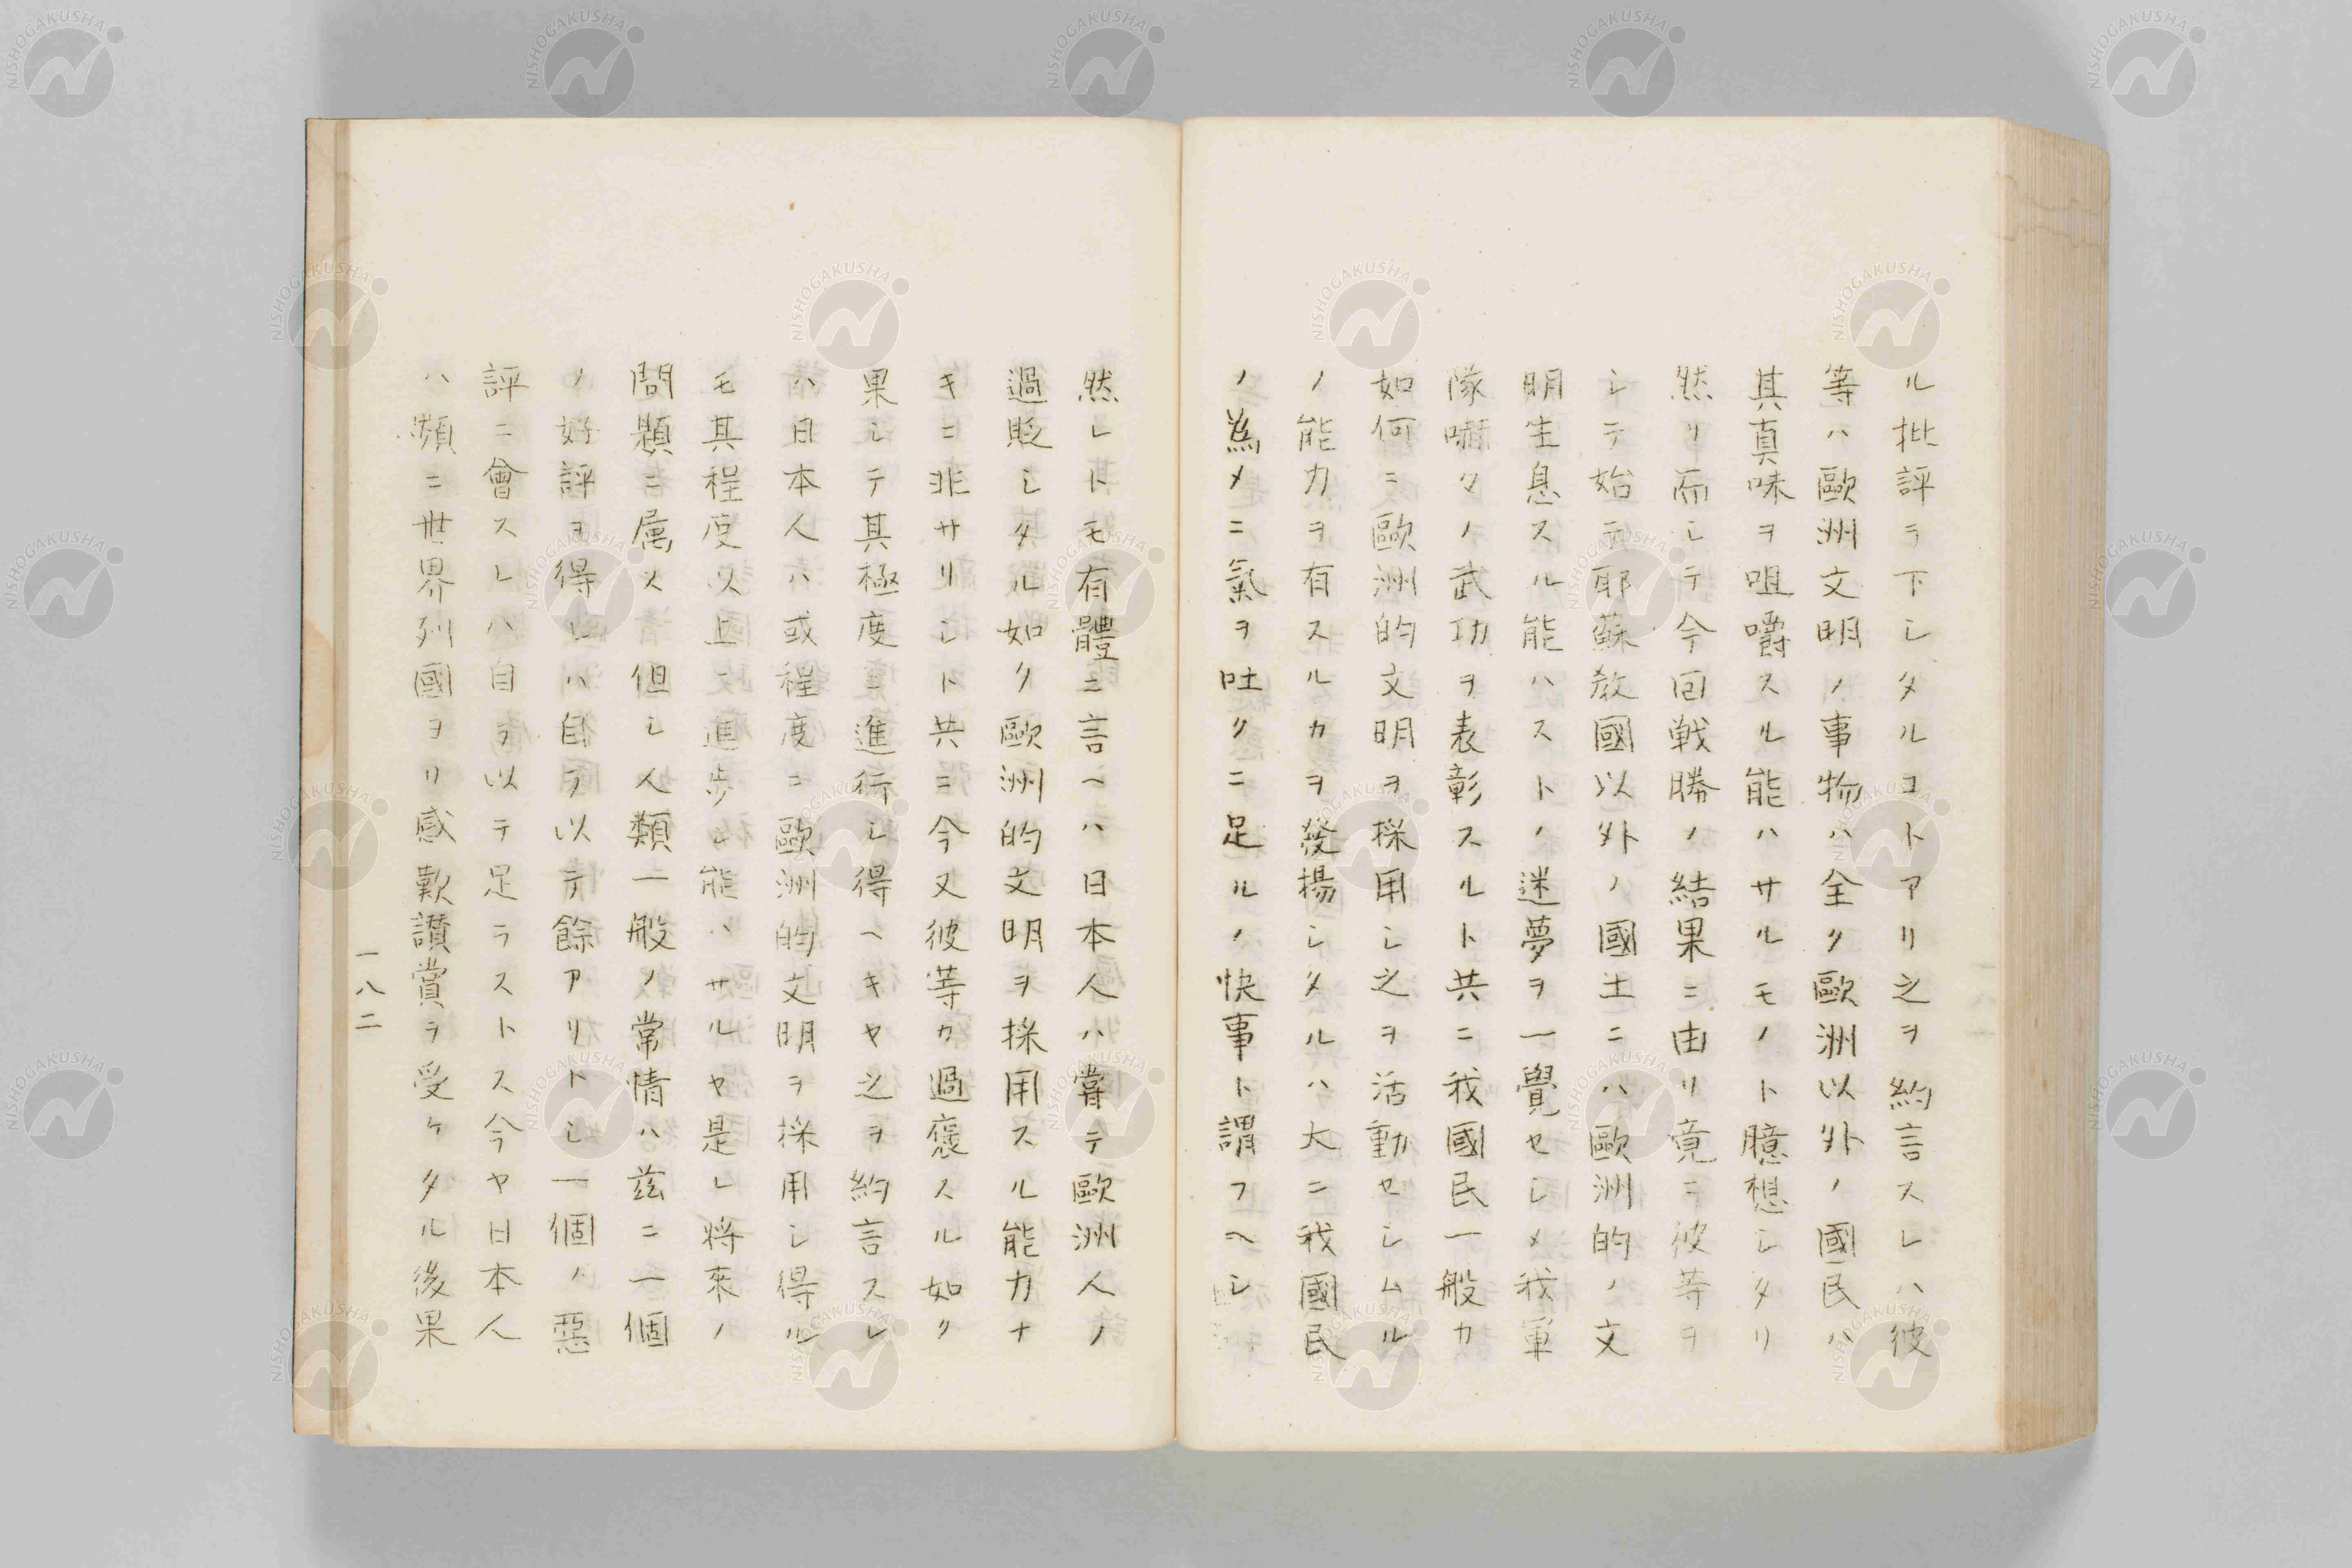 ル批評ヲ下シタルコトアリ之ヲ約言スレハ彼
等ハ歐洲文明ノ事物ハ全ク歐洲以外ノ國民ハ
其真味ヲ咀嚼スル能ハサルモノト臆想シタリ
然リ而シテ今回戦勝ノ結果ニ由リ竟ニ彼等ヲ
シテ始テ耶蘇教國以外ノ國土ニハ歐洲的ノ文
明生息スル能ハストノ迷夢ヲ一覺セシメ我軍
隊嚇々ノ武功ヲ表彰スルト共ニ我國民一般カ
如何ニ歐洲的文明ヲ採用シ之ヲ活動セシムル
ノ能力ヲ有スルカヲ發揚シタルハ大ニ我國民
ノ為メニ氣ヲ吐クニ足ルノ快事ト謂フヘシ
然レトモ有體ニ言ヘハ日本人ハ嘗テ歐洲人ノ
過貶シタル如ク歐洲的文明ヲ採用スル能力ナ
キニ非サリシト共ニ今又彼等カ過褒スル如ク
果シテ其極度ニ進行シ得ヘキヤ之ヲ約言スレ
ハ日本人ハ或程度ニ歐洲的文明ヲ採用シ得ル
モ其程度以上ニ進歩シ能ハサルヤ是レ将來ノ
問題ニ属ス但シ人類一般ノ常情ハ茲ニ一個
ノ好評ヲ得レハ自ラ以テ餘アリトシ一個ノ惡
評ニ會スレハ自ヲ以テ足ラストス今ヤ日本人
ハ頻ニ世界列國ヨリ感歎讃賞ヲ受ケタル後果
一八二
NISHOGAKUSHA